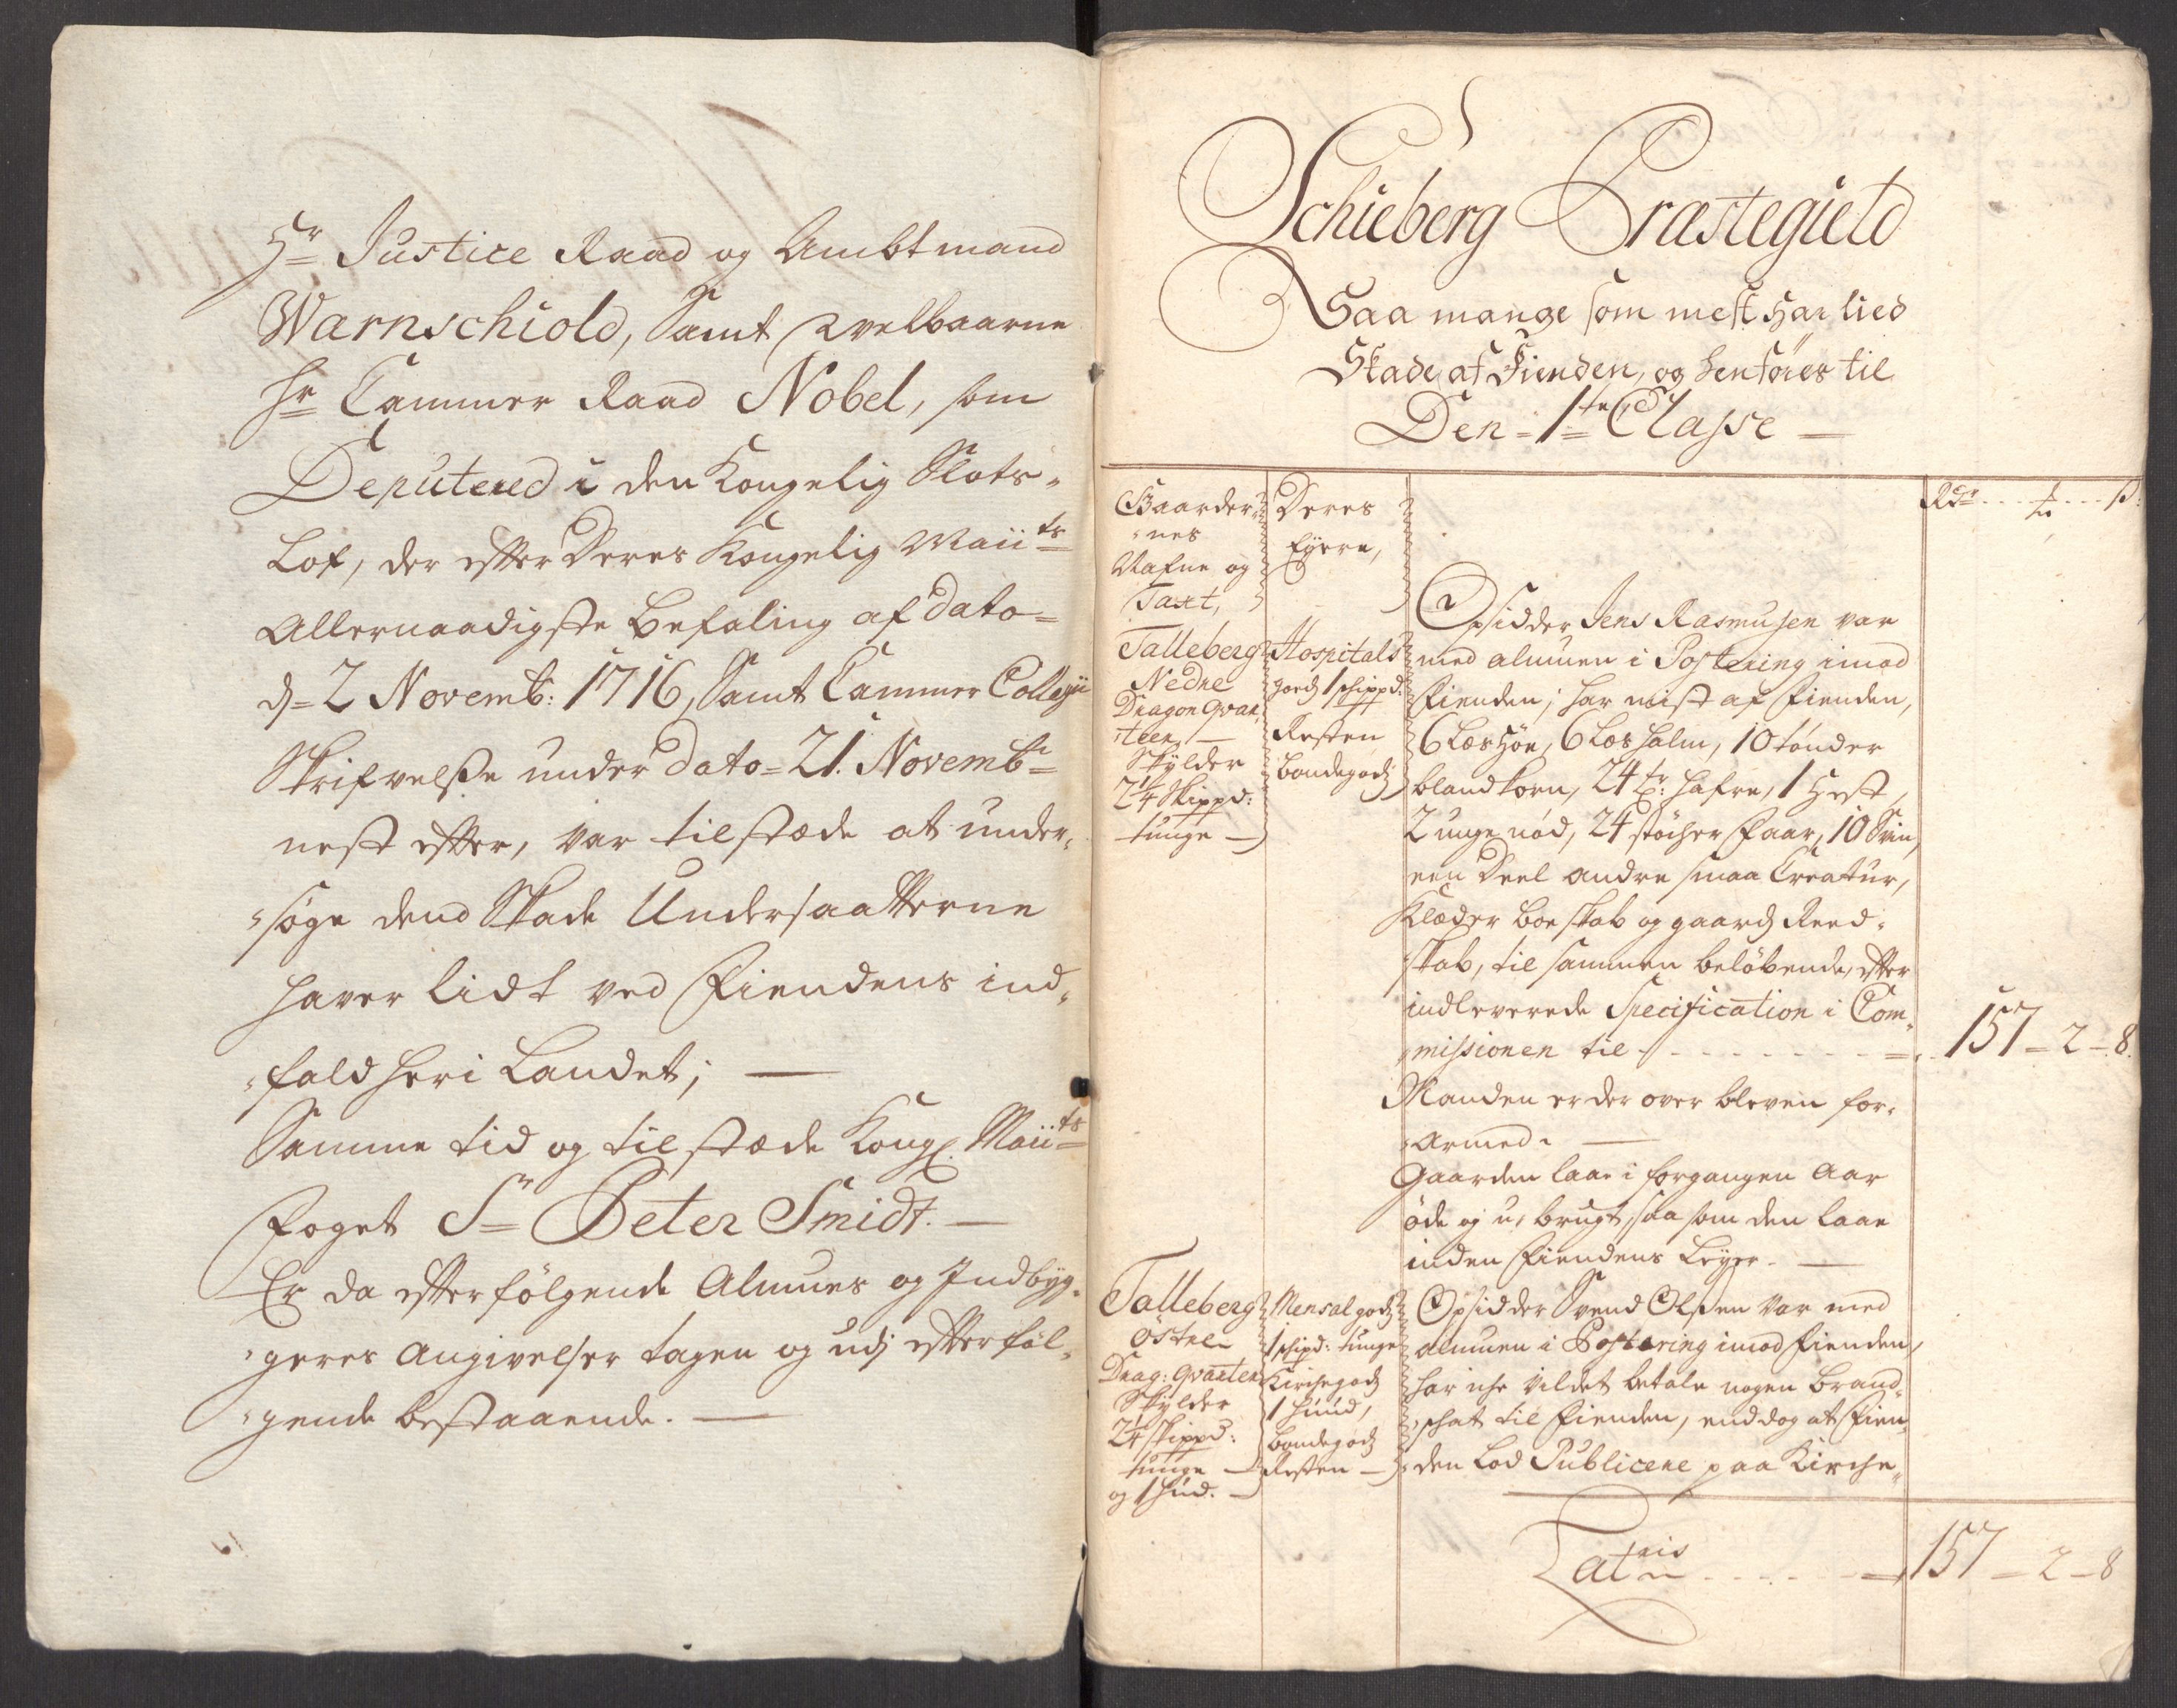 Hr Justice Raad og Ambtmand
Warnschiold, Samt Welbaarne
Hr Cammer Raad Nobel, som
Deputered i den Kongelig Slots-
Lof, der effter Deres Kongelig Maiits
Allernaadigste befaling af dato-
d= 2 Novemb: 1716, Samt Cammer Collegii
Skrifvelse under dato= 21. Novembr
nest effter, var tilstæde at under-
søge dend Skade Undersaatterne
hafver lidt ved Fiendens ind-
fald her i Landet; —
Samme tid og tilstæde Kongl. Maiits
Foget Sr Peter Smidt. —
Er da effterfølgende Almues og Indbyg-
geres angivelser tagen og udj effterføl-
gende bestaaende. —
Schieberg Præstegield
Saa mange som mest har lied
Skade af Fienden, og henføres til
Den 1te Classe —
Gaarder-
nes
Nafne og
Taxt,
Deres
Eyere,
Rdr ß:
Talleberg
Nedre
Dragon Qvar-
teer, —
Skylder
2¼ Skippd:
tunge —
Hospitals
gods 1 schippd:
Resten
bondegods
Opsidder Jens Rasmusen var
med almuen i Postering imod
Fienden; har mist af Fienden,
6 Læs Høe, 6 Læs halm, 10 tønder
bland Korn, 24 tr: hafre, 1 Hest,
2 unge nød, 24 støcher Faar, 10 Svin,
een Deel andre smaa Creatur,
Klæder boeskab og gaards Reed-
skab, til sammen beløbende, effter
indleverede Specification i Com-
missionen til 157 - 2 - 8.
Manden er der over bleven for-
armed. —
Gaarden laae i forgangen Aar
øde og u-brugt, saa som den laae
inden Fiendens Leyer. —
Talleberg
Østre
Drag: Qvarteer
Skylder
2¼ Skippd:
tunge —
og 1 hud. —
Mensal gods
1 schipd: tunge
Kirchegods
1 hud,
bondegods
Resten —
Opsidder Svend Olsen var med
almuen i Postering imod Fienden,
har iche vildet betale nogen brand-
schat til Fienden, end dog at Fien-
den lod Publicere paa Kirche-
Lateris 157 - 2 - 8